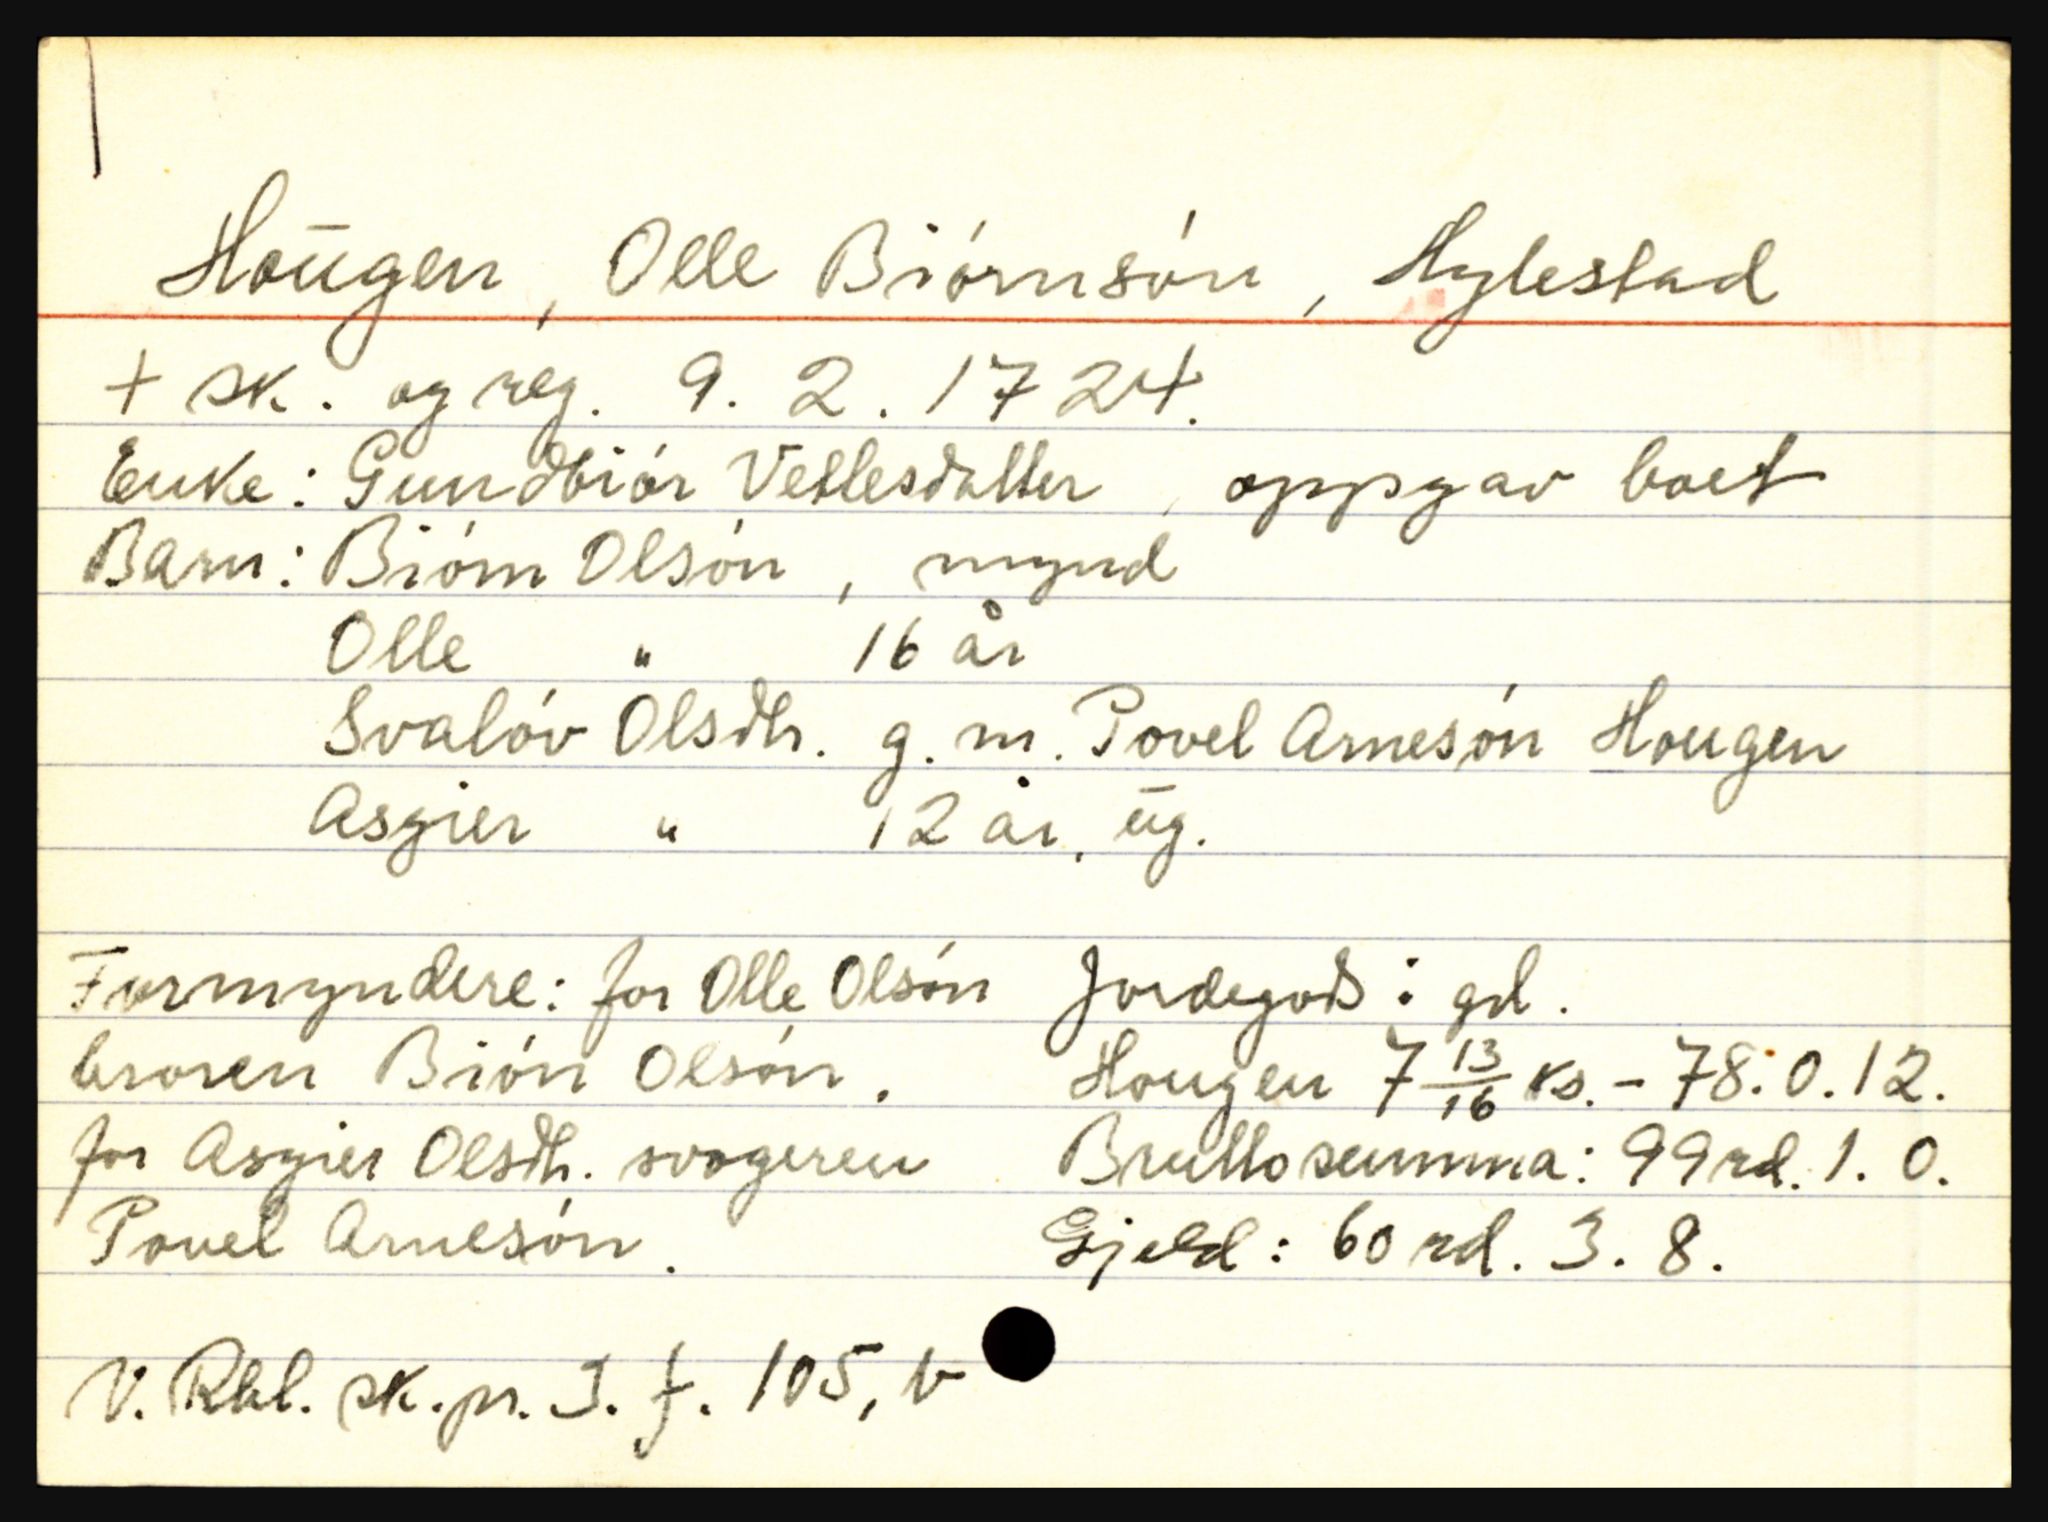 Hoūgen, Olle Biórnsón, Hylestad
+ sk. og reg. 9. 2. 1724.
Enke: Gundbiór Vetlesdatter, oppgav boet
Barn: Biórn Olsón, mynd
Olle " 16 år
Svalóv Olsdtr. g. m. Povel Arnesón Hougen
Asgier " 12 år, ūg.
Formyndere: for Olle Olsón
broren Bión Olsón.
for Asgier Olsdtr. svogeren
Povel Arnesón.
Jordegods i gd.
Hougen 7 13/16 ks. - 78. 0. 12.
Bruttosumma: 99 rd. 1. 0.
Gjeld: 60 rd. 3. 8.
V. Rbl. sk. pr. 3. f. 105, b